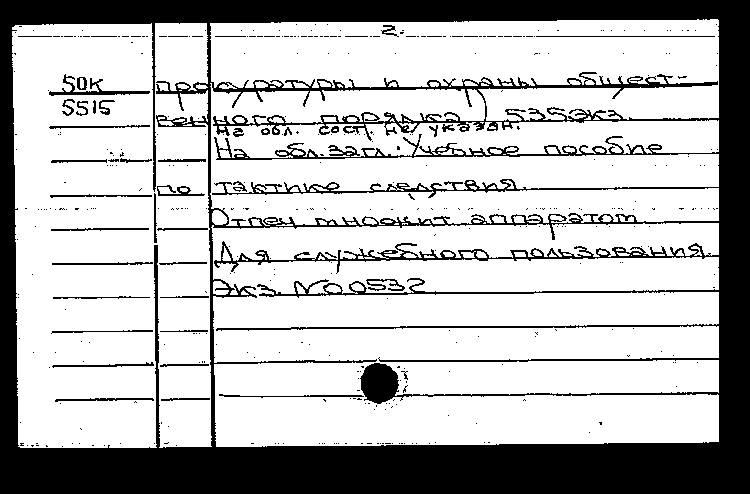 2.
50К прокуратуры и охраны общест-
5515 венного порядка) 535экз.
На обл. сост. не указан.
На обл. загл.: Учебное пособие
по тактике следствия.
Отпеч. множит. аппаратом
Для служебного пользования.
Экз. №00532